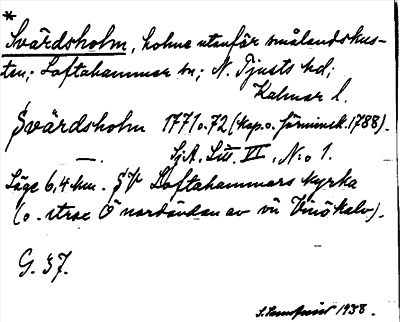 *
Svärdsholm, holme utanför smålandskus-
ten; Loftahammar sn; N. Tjusts hd;
Kalmar l.
Svärdsholm 1771 o. 72 (kop. o. förminsk. 1788).
SjA. Litt. VI, N:o 1.
Läge 6,4 km. SV Loftahammars kyrka
(o. strax Ö nordändan av ön Vinökalv).
G. 37.
1938.